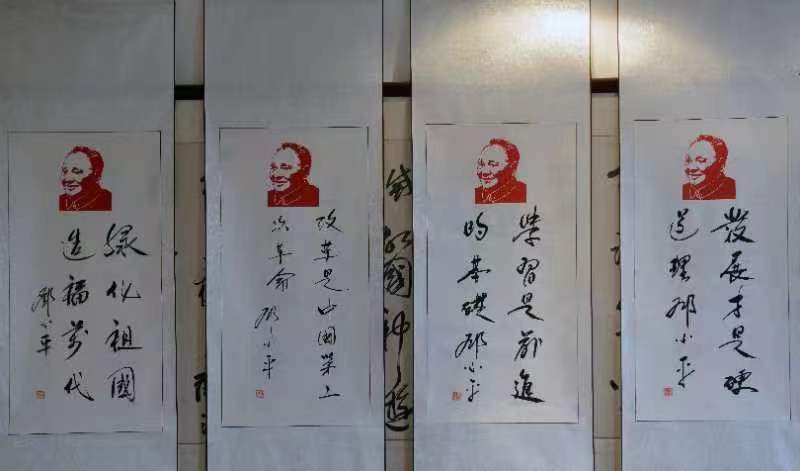 發展才是硬
道理 邓小平
學習是前進
的基礎 邓小平
改革是中國第二
次革命 邓小平
绿化祖國
造福萬代
邓小平
國神遊